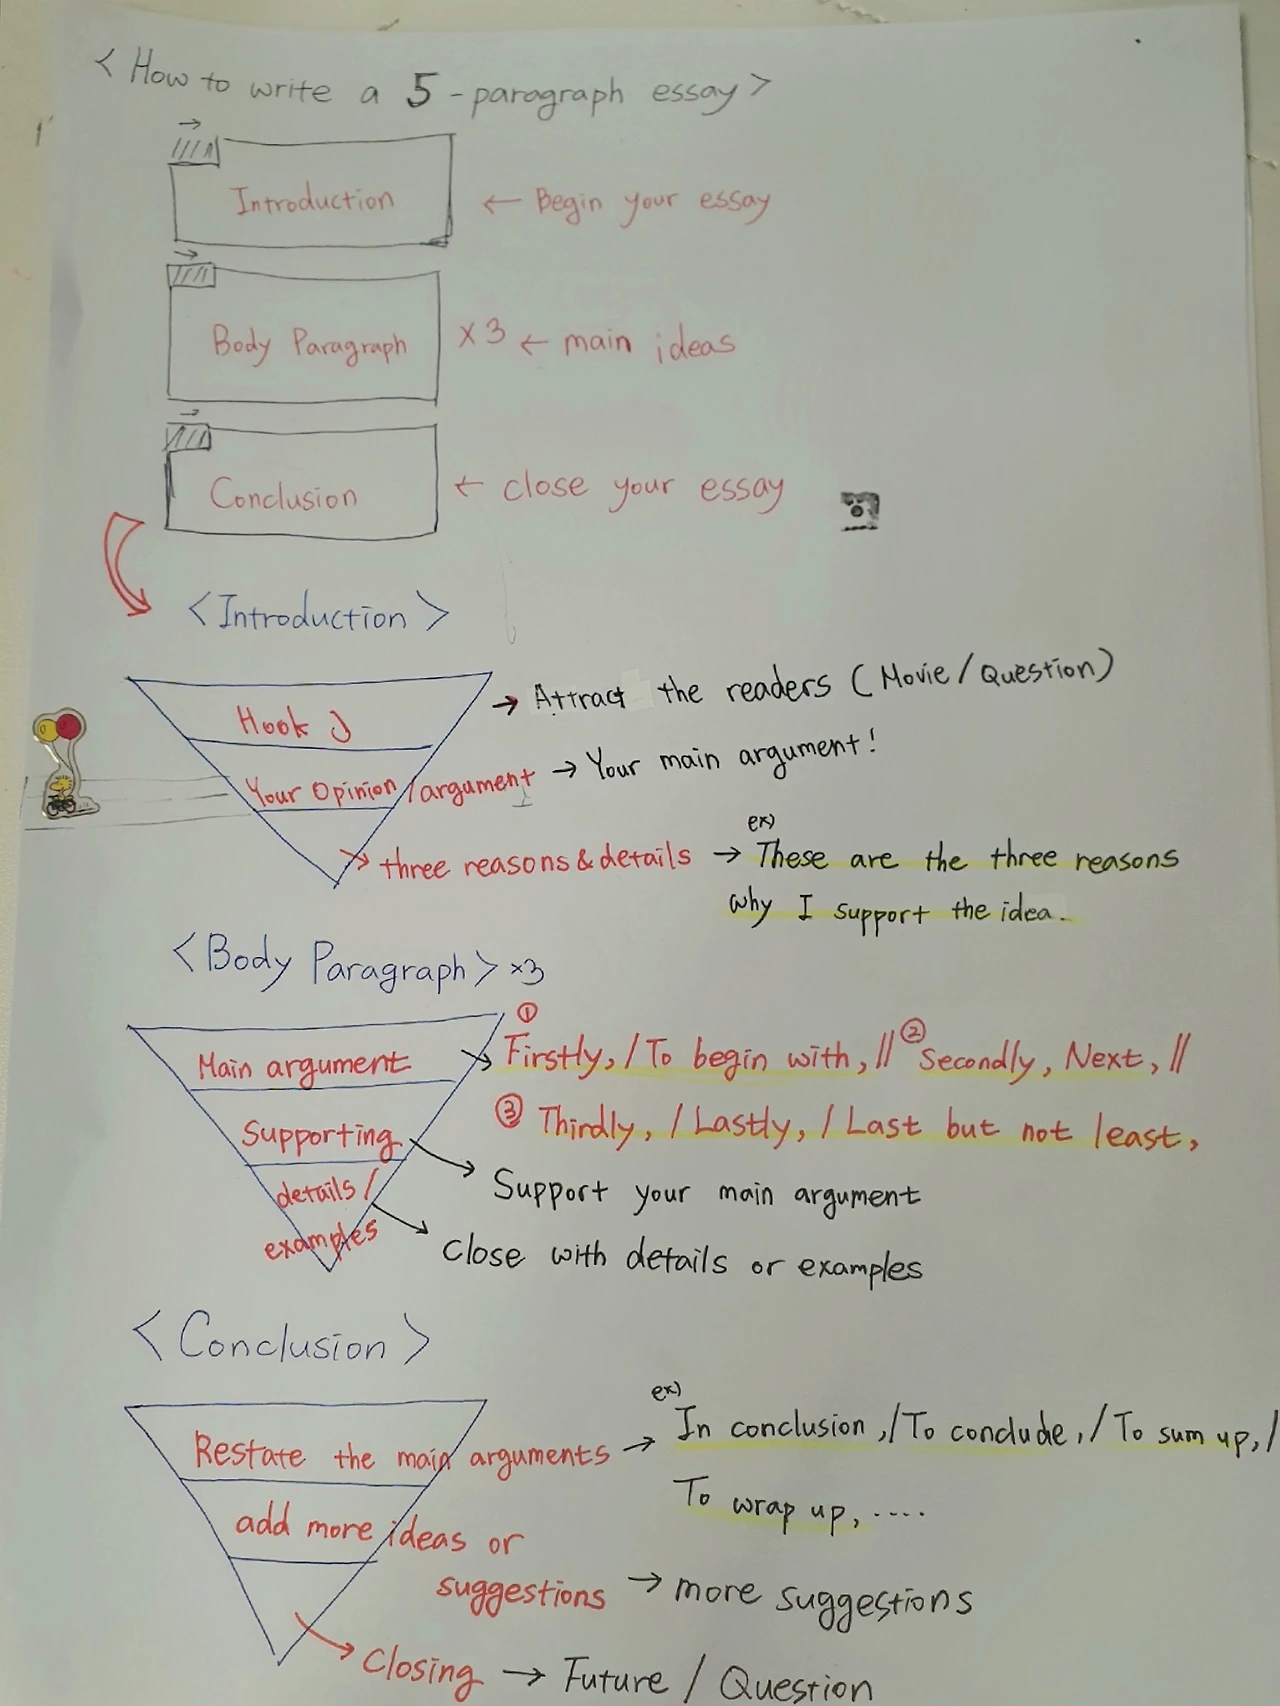 < How to write a 5-paragraph essay >
Introduction ← Begin your essay
Body Paragraph ×3 ← main ideas
Conclusion ← close your essay
<Introduction>
Hook J → Attract the readers (Movie/Question)
Your Opinion/argument → Your main argument!
ex)
three reasons & details → These are the three reasons
why I support the idea.
<Body Paragraph> ×3
Main argument → ① Firstly, / To begin with, // ② Secondly, Next, //
③ Thirdly, / Lastly, / Last but not least,
Supporting → Support your main argument
details/
examples → Close with details or examples
<Conclusion>
ex)
Restate the main arguments → In conclusion, / To conclude, / To sum up, /
To wrap up, ....
add more ideas or
suggestions → more suggestions
Closing → Future / Question